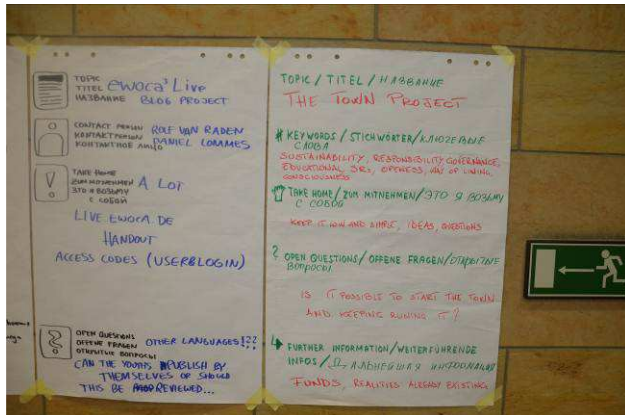 TOPIC
TITEL
НАЗВАНИЕ
ewoca³ Live
BLOG PROJECT
CONTACT PERSON
KONTAKTPERSON
КОНТАКТНОЕ ЛИЦО
ROLF VAN RADEN
DANIEL LOMMES
TAKE HOME
ZUM MITNEHMEN
ЭТО Я ВОЗЬМУ
С СОБОЙ
A LOT
LIVE.EWOCA.DE
HANDOUT
ACCESS CODES (USERBLOGIN)
OPEN QUESTIONS
OFFENE FRAGEN
ОТКРЫТЫЕ ВОПРОСЫ
OTHER LANGUAGES!??
CAN THE YOUTHS PUBLISH BY
THEMSELVES OR SHOULD
THIS BE REVIEWED...
TOPIC / TITEL / НАЗВАНИЕ
THE TOWN PROJECT
# KEYWORDS / STICHWÖRTER / КЛЮЧЕВЫЕ
СЛОВА
SUSTAINABILITY, RESPONSIBILITY, GOVERNANCE,
EDUCATIONAL, OPENESS, WAY OF LIVING,
CONSCIOUSNESS
TAKE HOME / ZUM MITNEHMEN / ЭТО Я ВОЗЬМУ
С СОБОЙ
KEEP IT LOW AND SIMPLE, IDEAS, QUESTIONS
? OPEN QUESTIONS / OFFENE FRAGEN / ОТКРЫТЫЕ
ВОПРОСЫ
IS IT POSSIBLE TO START THE TOWN
AND KEEPING RUNING IT?
FURTHER INFORMATION / WEITERFÜHRENDE
INFOS / ДАЛЬНЕЙШАЯ ИНФОРМАЦИЯ
FUNDS, REALITIES ALREADY EXISTING